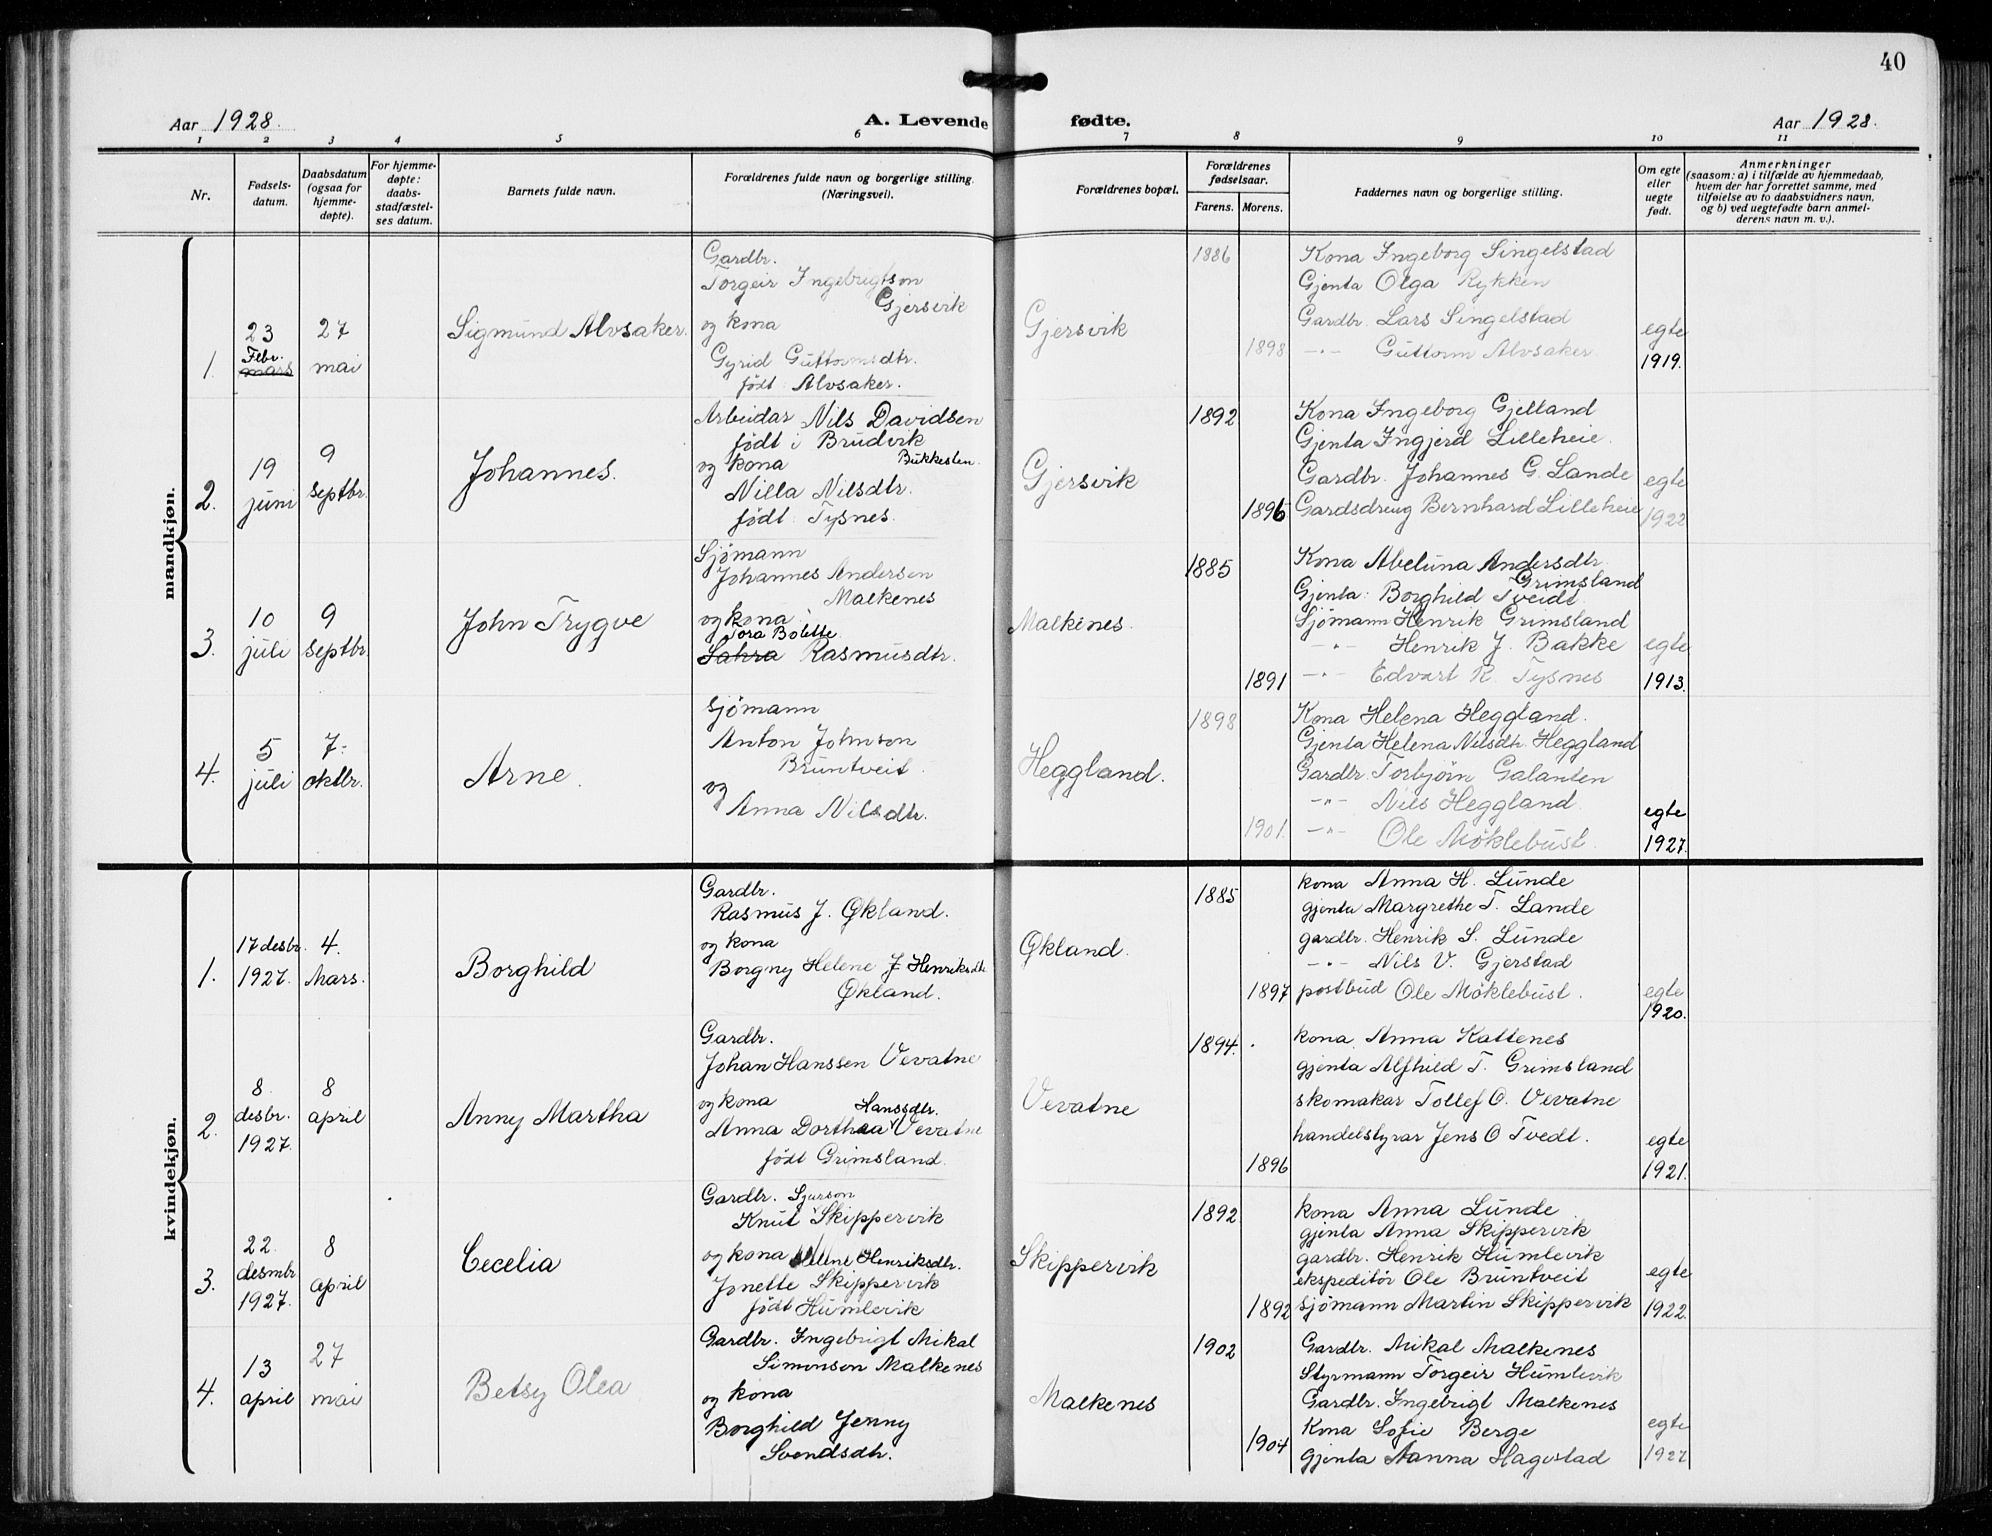 40
Aar 1928.
A. Levende fødte.
Aar 1928.
1 2 3 4 5 6 7 8 9 10 11
Nr.
Fødsels-
datum.
Daabsdatum
(ogsaa for
hjemme-
døpte).
For hjemme-
døpte:
daabs-
stadfæstel-
ses datum.
Barnets fulde navn.
Forældrenes fulde navn og borgerlige stilling.
(Næringsvei).
Forældrenes bopæl.
Forældrenes
fødselsaar.
Farens. Morens.
Faddernes navn og borgerlige stilling.
Om egte
eller
uegte
født.
Anmerkninger
(saasom: a) i tilfælde av hjemmedaab,
hvem der har forrettet samme, med
tilføielse av to daabsvidners navn,
og b) ved uegtefødte barn anmel-
derens navn m. v.).
mandkjøn.
1.
23
Febr.
mars
27
mai
Sigmund Alvsaker.
Gardbr.
Torgeir Ingebrigtson
Gjersvik
og kona
Gyrid Guttormsdtr.
født Alvsaker.
Gjersvik
1886
1898
Kona Ingeborg Singelstad
Gjenta Olga Rykken
Gardbr. Lars Singelstad
-"- Guttorm Alvsaker
egte
1919.
2.
19
juni
9
septbr.
Johannes.
Arbeidar Nils Davidsen
født i Brudvik
og kona Bukkesten.
Nilla Nilsdtr.
født: Tysnes.
Gjersvik
1892
1896
Kona Ingeborg Gjelland
Gjenta Ingjerd Lilleheie.
Gardbr. Johannes G. Lande
Gardsdreng Bernhard Lilleheie
egte
1922
3.
10
juli
9
septbr.
John Trygve
Sjømann
Johannes Andersen
Malkenes
og kona
Tora Bolette
Sahra Rasmusdtr.
Malkenes.
1885
1891
Kona Abeluna Andersdtr
Grimsland
Gjenta: Borghild Tveidt.
Sjømann Henrik Grimsland
-"- Henrik J. Bakke
-"- Edvart R. Tysnes
egte
1913.
4.
5
juli
7
oktbr.
Arne.
Sjømann
Anton Johnson
Bruntveit
og
Anna Nilsdtr.
Heggland.
1898
1901.
Kona Helena Heggland.
Gjenta Helena Nilsdtr. Heggland
Gardbr. Torbjørn Galanten
-"- Nils Heggland
-"- Ole Møklebust.
egte
1927.
kvindekjøn.
1.
17 desbr.
1927.
4.
Mars.
Borghild
Gardbr.
Rasmus J. Økland.
og kona
Borgny Helene J Henriksdtr
Økland.
Økland.
1885
1897
kona Anna H. Lunde
gjenta Margrethe T. Lande
gardbr. Henrik S. Lunde
-"- Nils V. Gjerstad
postbud Ole Møklebust.
egte
1920.
2.
8.
desbr.
1927.
8
april
Anny Martha
Gardbr.
Johan Hanssen Vevatne
og kona Hanssdtr.
Anna Dorthea Vevatne
født Grimsland.
Vevatne
1894.
1896
kona Anna Kattenes
gjenta Alfhild T. Grimsland
skomakar Tollef O. Vevatne
handelstyrar Jens O Tvedt.
egte
1921.
3.
22.
desmbr
1927.
8
april
Cecelia
Gardbr. Sjurson
Knut Skippervik
og kona Helene Henriksdtr.
Jonette Skippervik
født Humlevik
Skippervik
1892
1892
kona Anna Lunde
gjenta Anna Skippervik
gardbr. Henrik Humlevik
ekspeditør Ole Bruntveit
sjømann Martin Skippervik
egte
1922.
4.
13
april
27
mai
Betsy Olea
Gardbr. Ingebrigt Mikal
Simonson Malkenes
og kona
Borghild Jenny
Svendsdtr.
Malkenes
1902
1904
Gardbr. Mikal Malkenes
Styrmann Torgeir Humlevik
Gardbr. Ingebrigt Malkenes
Kona Sofie Berge
Gjenta Nanna Hagestad
egte
1927